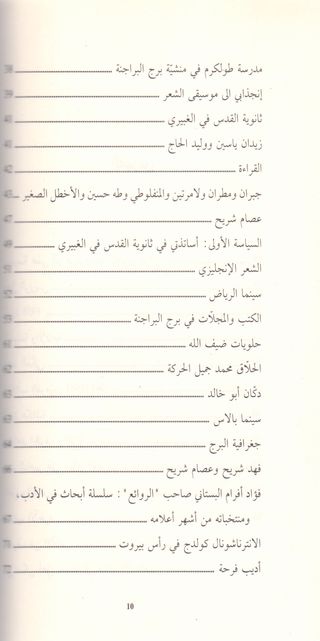 مدرسة طولكرم في منشيّة برج البراجنة 38
إنجذابي الى موسيقى الشعر 39
ثانوية القدس في الغبيري 40
زيدان ياسين ووليد الحاج 41
القراءة 42
جبران ومطران ولامرتين والمنفلوطي وطه حسين والأخطل الصغير 43
عصام شريح 47
السياسة الأولى: أساتذتي في ثانوية القدس في الغبيري 49
الشعر الإنجليزي 51
سينما الرياض 52
الكتب والمجلّات في برج البراجنة 53
حلويات ضيف الله 61
الحلاّق محمد جميل الحركة 62
دكّان أبو خالد
سينما بالاس
جغرافية البرج 64
فهد شريح وعصام شريح 66
فؤاد أفرام البستاني صاحب "الروائع": سلسلة أبحاث في الأدب،
ومنتخباته من أشهر أعلامه 67
الانترناشونال كولدج في رأس بيروت
أديب فرحة 72
10